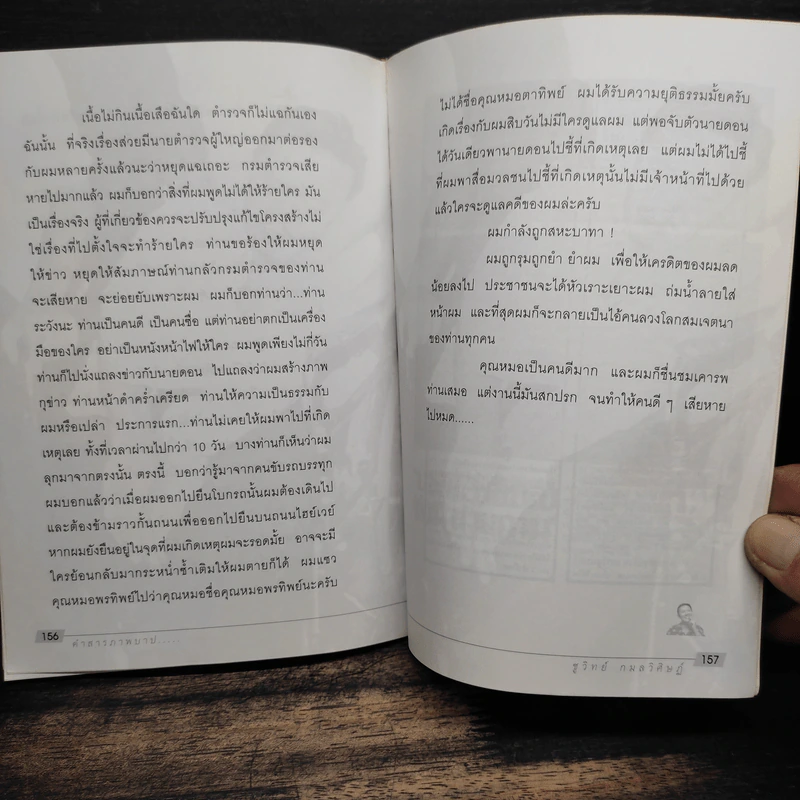 เนื้อไม่กินเนื้อเสือฉันใด ตำรวจก็ไม่แฉกันเอง
ฉันนั้น ที่จริงเรื่องส่วยมีนายตำรวจผู้ใหญ่ออกมาต่อรอง
กับผมหลายครั้งแล้วนะว่าหยุดแฉเถอะ กรมตำรวจเสีย
หายไปมากแล้ว ผมก็บอกว่าสิ่งที่ผมพูดไม่ได้ให้ร้ายใคร มัน
เป็นเรื่องจริง ผู้ที่เกี่ยวข้องควรจะปรับปรุงแก้ไขโครงสร้างไม่
ใช่เรื่องที่ไปตั้งใจจะทำร้ายใคร ท่านขอร้องให้ผมหยุด
ให้ข่าว หยุดให้สัมภาษณ์ท่านกลัวกรมตำรวจของท่าน
จะเสียหาย จะย่อยยับเพราะผม ผมก็บอกท่านว่า...ท่าน
ระวังนะ ท่านเป็นคนดี เป็นคนซื่อ แต่ท่านอย่าตกเป็นเครื่อง
มือของใคร อย่าเป็นหนังหน้าไฟให้ใคร ผมพูดเพียงไม่กี่วัน
ท่านก็ไปนั่งแถลงข่าวกับนายดอน ไปแถลงว่าผมสร้างภาพ
กุข่าว ท่านหน้าดำคร่ำเครียด ท่านให้ความเป็นธรรมกับ
ผมหรือเปล่า ประการแรก...ท่านไม่เคยให้ผมพาไปที่เกิด
เหตุเลย ทั้งที่เวลาผ่านไปกว่า 10 วัน บางท่านก็เห็นว่าผม
ลุกมาจากตรงนั้น ตรงนี้ บอกว่ารู้มาจากคนขับรถบรรทุก
ผมบอกแล้วว่าเมื่อผมออกไปยืนโบกรถนั้นผมต้องเดินไป
และต้องข้ามราวกั้นถนนเพื่อออกไปยืนบนถนนไฮย์เวย์
หากผมยังยืนอยู่ในจุดที่ผมเกิดเหตุผมจะรอดมั้ย อาจจะมี
ใครย้อนกลับมากระหน่ำซ้ำเติมให้ผมตายก็ได้ ผมแซว
คุณหมอพรทิพย์ไปว่าคุณหมอชื่อคุณหมอพรทิพย์นะครับ
156 คำสารภาพบาป.....
ไม่ได้ชื่อคุณหมอตาทิพย์ ผมได้รับความยุติธรรมมั้ยครับ
เกิดเรื่องกับผมสิบวันไม่มีใครดูแลผม แต่พอจับตัวนายดอน
ได้วันเดียวพานายดอนไปชี้ที่เกิดเหตุเลย แต่ผมไม่ได้ไปชี้
ที่ผมพาสื่อมวลชนไปชี้ที่เกิดเหตุนั้นไม่มีเจ้าหน้าที่ไปด้วย
แล้วใครจะดูแลคดีของผมล่ะครับ
ผมกำลังถูกสหะบาทา !
ผมถูกรุมถูกยำ ยำผม เพื่อให้เครดิตของผมลด
น้อยลงไป ประชาชนจะได้หัวเราะเยาะผม ถ่มน้ำลายใส่
หน้าผม และที่สุดผมก็จะกลายเป็นไอ้คนลวงโลกสมเจตนา
ของท่านทุกคน
คุณหมอเป็นคนดีมาก และผมก็ชื่นชมเคารพ
ท่านเสมอ แต่งานนี้มันสกปรก จนทำให้คนดี ๆ เสียหาย
ไปหมด......
ชูวิทย์ กมลวิศิษฎ์ 157